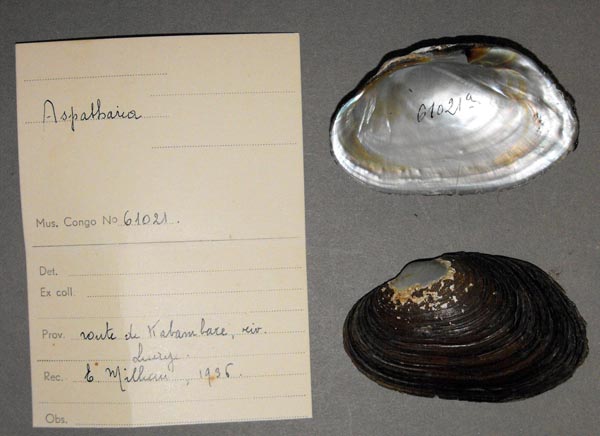 Aspatharia
Mus. Congo No 61021.
Det.
Ex coll.
Prov. route de Kabambare, riv.
Rec. E. 1936.
Obs.
61021a